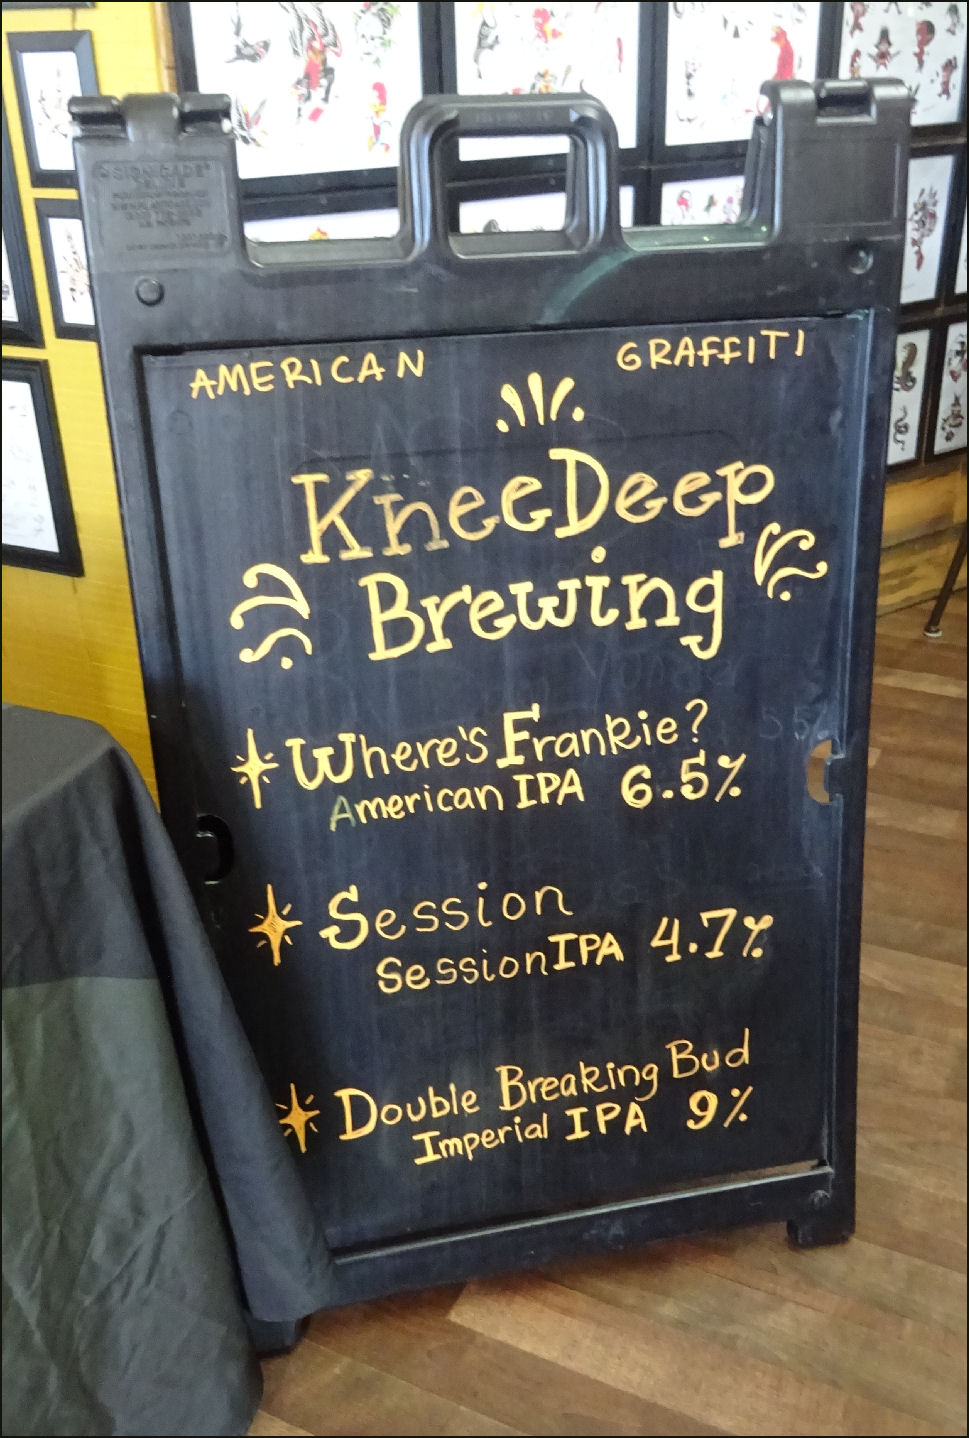 SIGNICADE
DELUXE
AMERICAN GRAFFITI
KneeDeep
Brewing
Where's Frankie?
American IPA 6.5%
Session
Session IPA 4.7%
Double Breaking Bud
Imperial IPA 9%